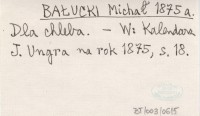 BAŁUCKI Michał 1875 a.
Dla chleba. – W: Kalendarz
J. Ungra na rok 1875, s. 18.
BJ/003/0615